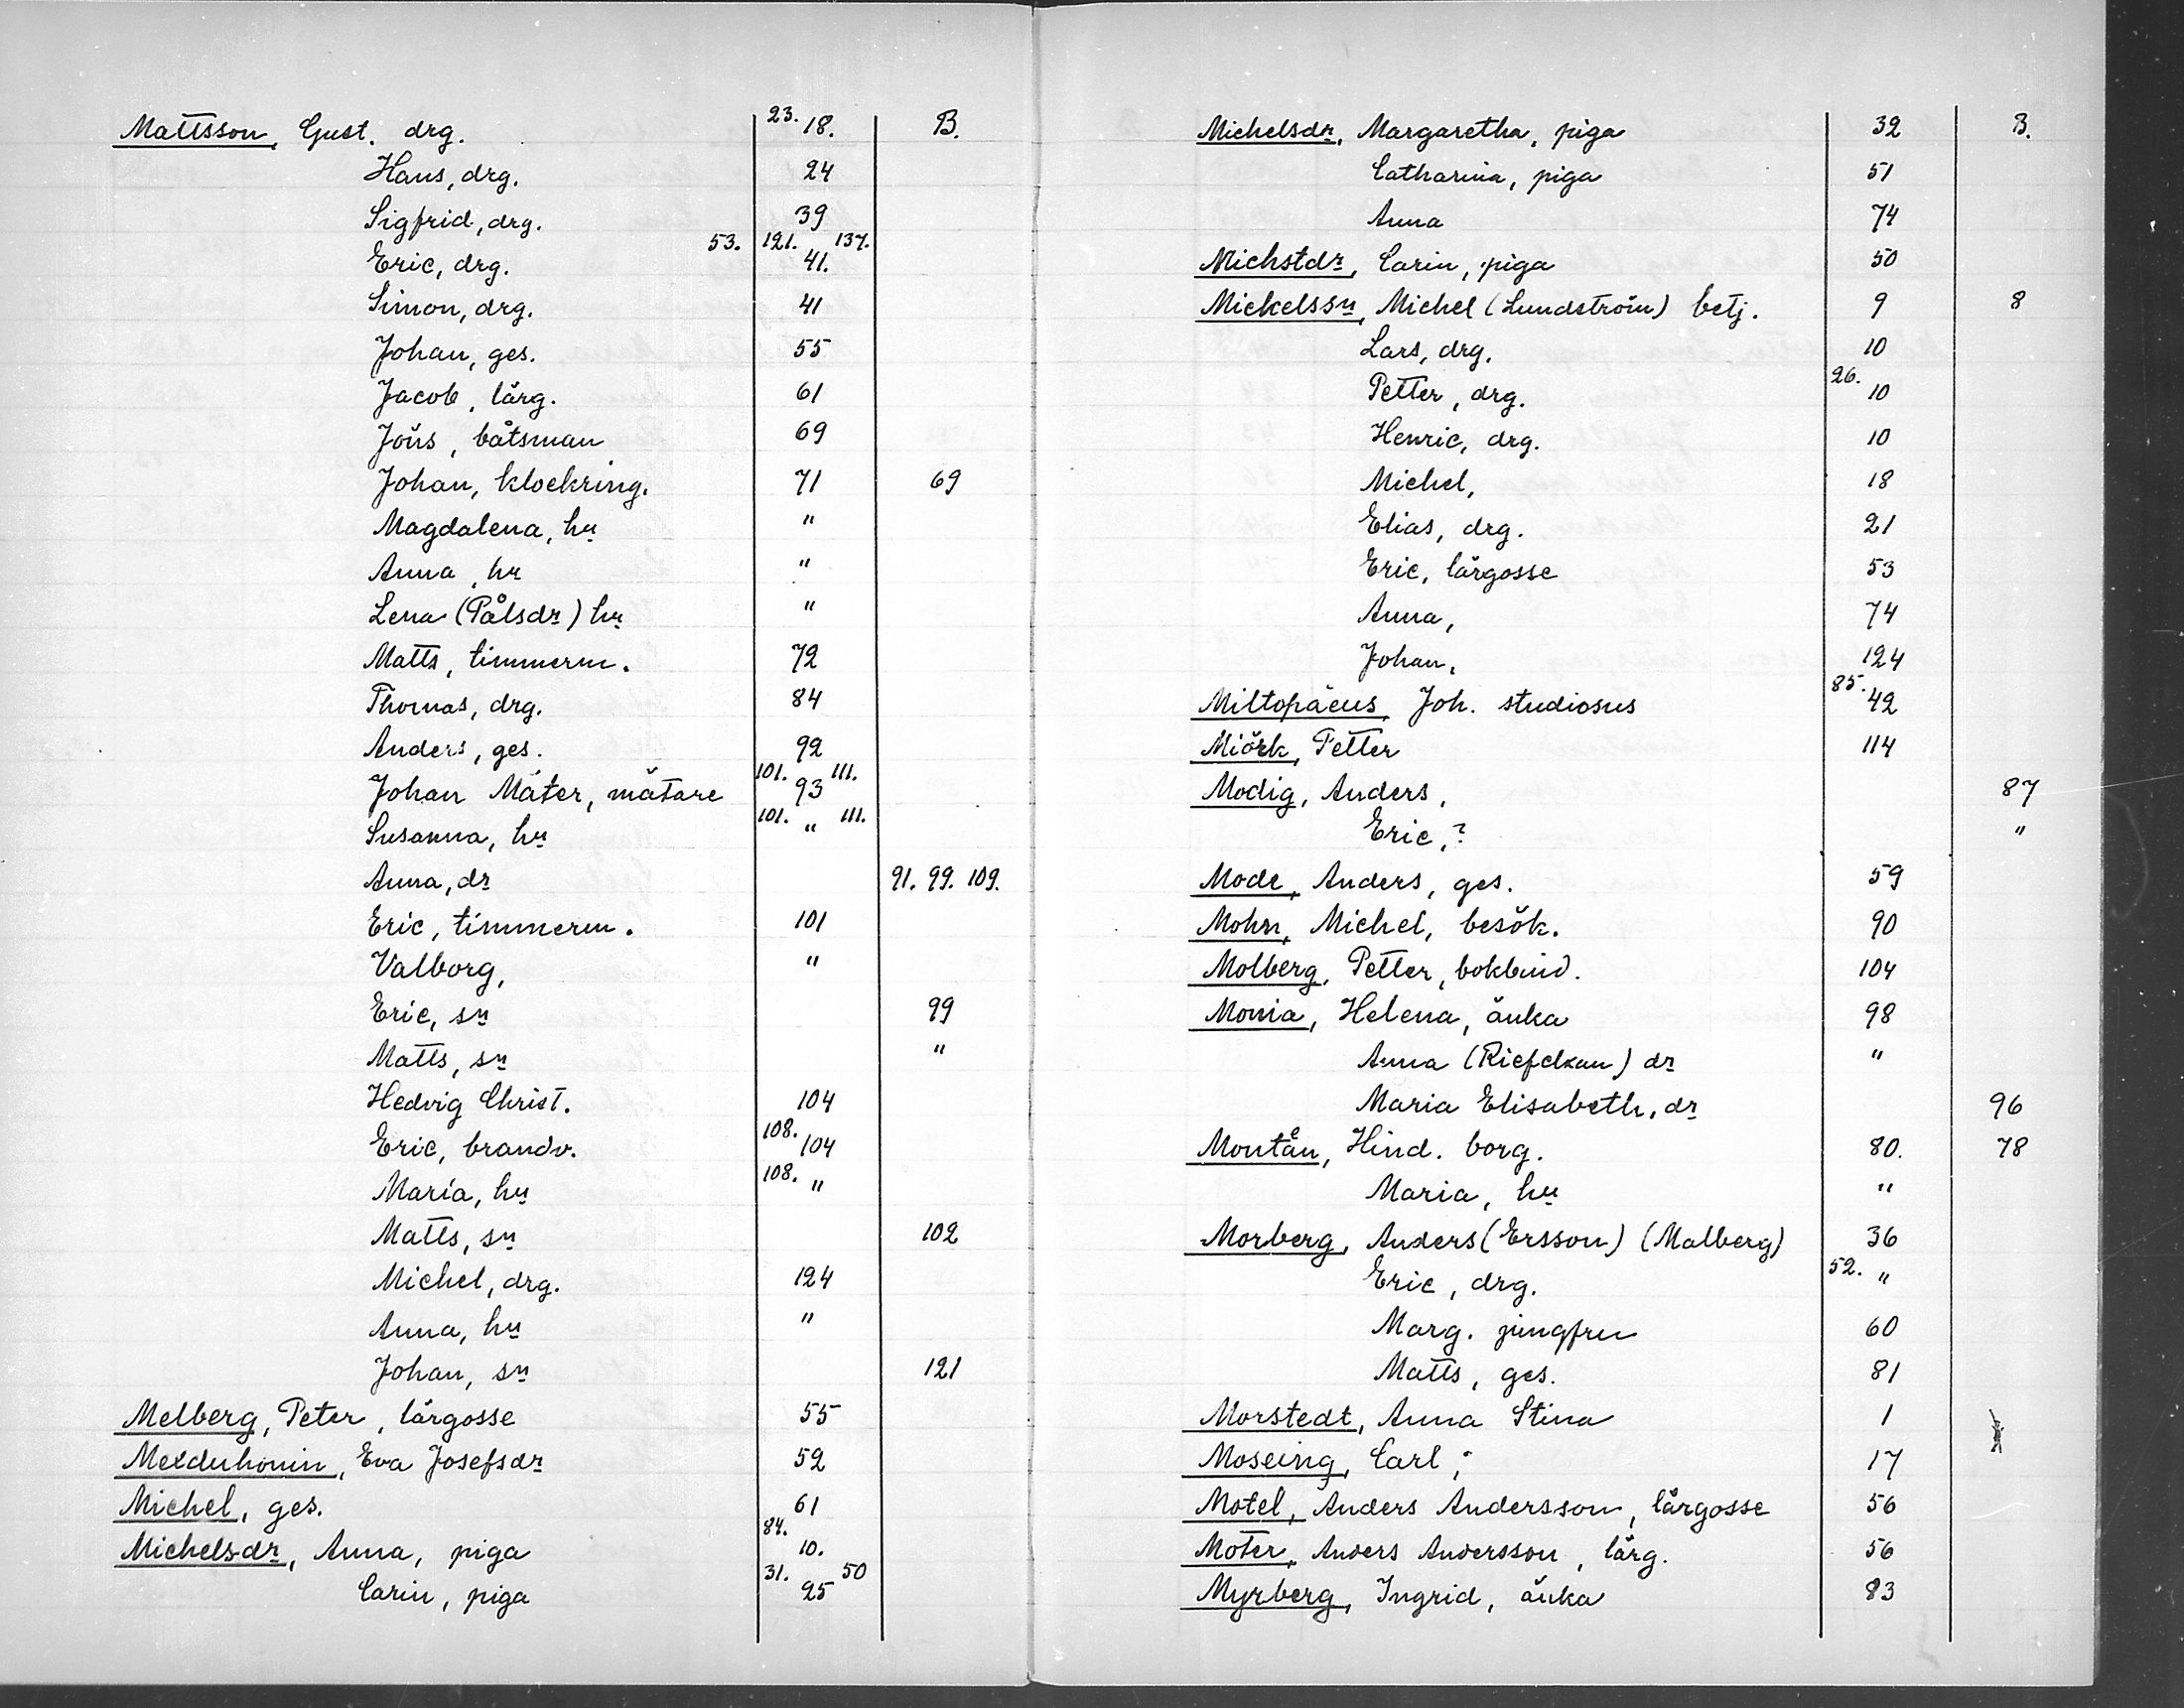 Mattsson, Gust. drg. 23. 18. B.
Hans, drg. 24
Sigfrid, drg. 39
Eric, drg. 53. 121. 137. 41.
Simon, drg. 41
Johan, ges. 55
Jacob, lärg. 61
Jöns, båtsman 69
Johan, klockring. 71 69
Magdalena, hu "
Anna, hu "
Lena (Pålsdr) hu "
Matts, timmerm. 72
Thomas, drg. 84
Anders, ges. 92
Johan Mäter, mätare 101. 93 111.
Susanna, hu 101. " 111.
Anna, dr 91. 99. 109.
Eric, timmerm. 101
Valborg, "
Eric, sn 99
Matts, sn "
Hedvig Christ. 104
Eric, brandv. 108. 104
Maria, hu 108. "
Matts, sn 102
Michel, drg. 124
Anna, hu "
Johan, sn 121
Melberg, Peter, lärgosse 55
Eva Josefsdr 52
Michel, ges. 61
Michelsdr, Anna, piga 84. 10.
Carin, piga 31. 25 50
Michelsdr, Margaretha, piga 32 B.
Catharina, piga 51
Anna 74
Michstdr, Carin, piga 50
Mickelssn, Michel (Lundström) betj. 9 8
Lars, drg. 10
Petter, drg. 26. 10
Henric, drg. 10
Michel, 18
Elias, drg. 21
Eric, lärgosse 53
Anna, 74
Johan, 124
Miltopäeus, Joh. studiosus 85. 42
Miörk, Petter 114
Modig, Anders, 87
Eric,? "
Mode, Anders, ges. 59
Mohn, Michel, besök. 90
Molberg, Petter, bokbind. 104
Monia, Helena, änka 98
Anna dr "
Maria Elisabeth, dr 96
Montån, Hind. borg. 80. 78
Maria, hu "
Morberg, Anders (Ersson) (Malberg) 36
Eric, drg. 52. "
Marg. jungfru 60
Matts, ges. 81
Morstedt, Anna Stina 1
Moseing, Carl, 17
Motel, Anders Andersson, lärgosse 56
Moter, Anders Andersson, lärg. 56
Myrberg, Ingrid, änka 83